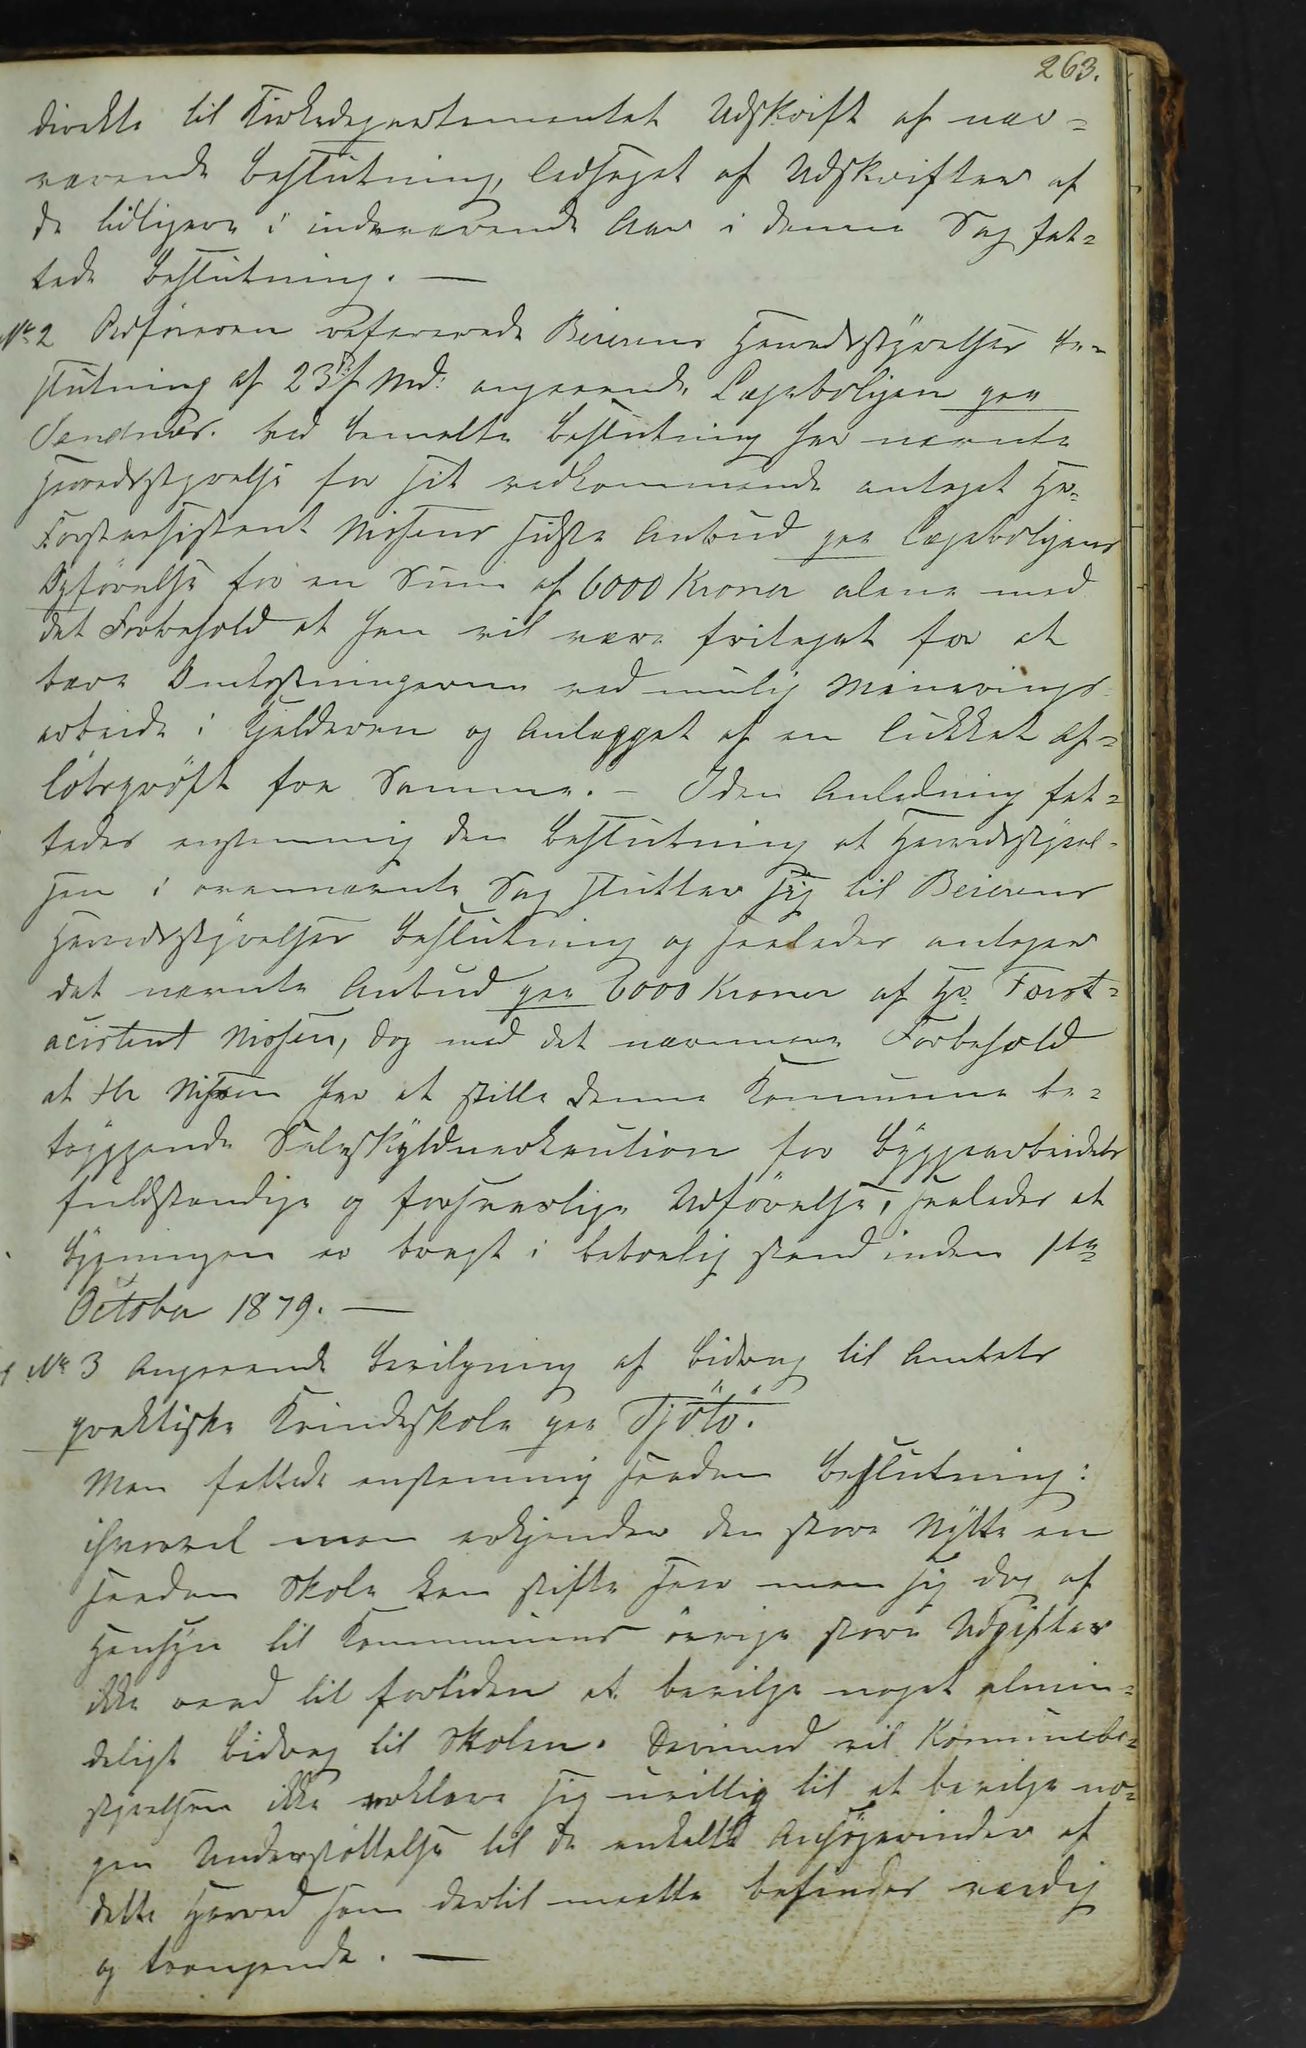 263.
direkte til Kirkedepartementet Udskrift af nær-
værende Beslutning, ledsaget af Udskrifter af
de tidligere i indeværende Aar i denne Sag fat-
tede Beslutning. —
No 2 Ordføreren refererede Beierens Herredsstyrelses Be-
slutning af 23de f. Md: angaaende Lægeboligen paa
Sandnæs. Ved bemeldte Beslutning har nævnte
Herredsstyrelse for sit vedkommende antaget Hr.
Forstassistent Nissens sidste Anbud paa Lægeboligens
Opførelse for en Sum af 6000 Kroner alene med
det Forbehold at han vil være fritaget for at
bære Omkostningerne ved mulig Minerings-
arbeide i Kjelderen og Anlægget af en lukket Af-
løbsgrøft fra Samme. — I den Anledning fat-
tedes enstemmig den Beslutning at Herredsstyrel-
sen i ovennævnte Sag slutter sig til Beierens
Herredsstyrelses Beslutning og saaledes antager
det nævnte Anbud paa 6000 Kroner af Hr. Forst-
acistent Nissen, dog med det nærmere Forbehold
at Hr Nissen har at stille denne Kommune be-
tryggende Selvskyldnerkaution for Byggearbeidets
fuldstændige og forsvarlige Udførelse, saaledes at
Bygningen er bragt i beboelig stand inden 1ste
October 1879. —
No 3 Angaaende Bevilgning af Bidrag til Amtets
praktiske Kvindeskole paa Tjøtø.
Man fattede enstemmig saadan Beslutning:
ihvorvel man erkjender den store Nytte en
saadan Skole kan stifte saa man sig dog af
Hensyn til Kommunens øvrige store Udgifter
ikke istand til fortiden at bevilge noget almin-
deligt Bidrag til Skolen. Derimod vil Kommunebe-
styrelsen ikke erklære sig uvillig til at bevilge no-
gen Understøttelse til de enkelte Ansøgerinder af
dette Herred som dertil maatte befindes værdig
og trængende. —